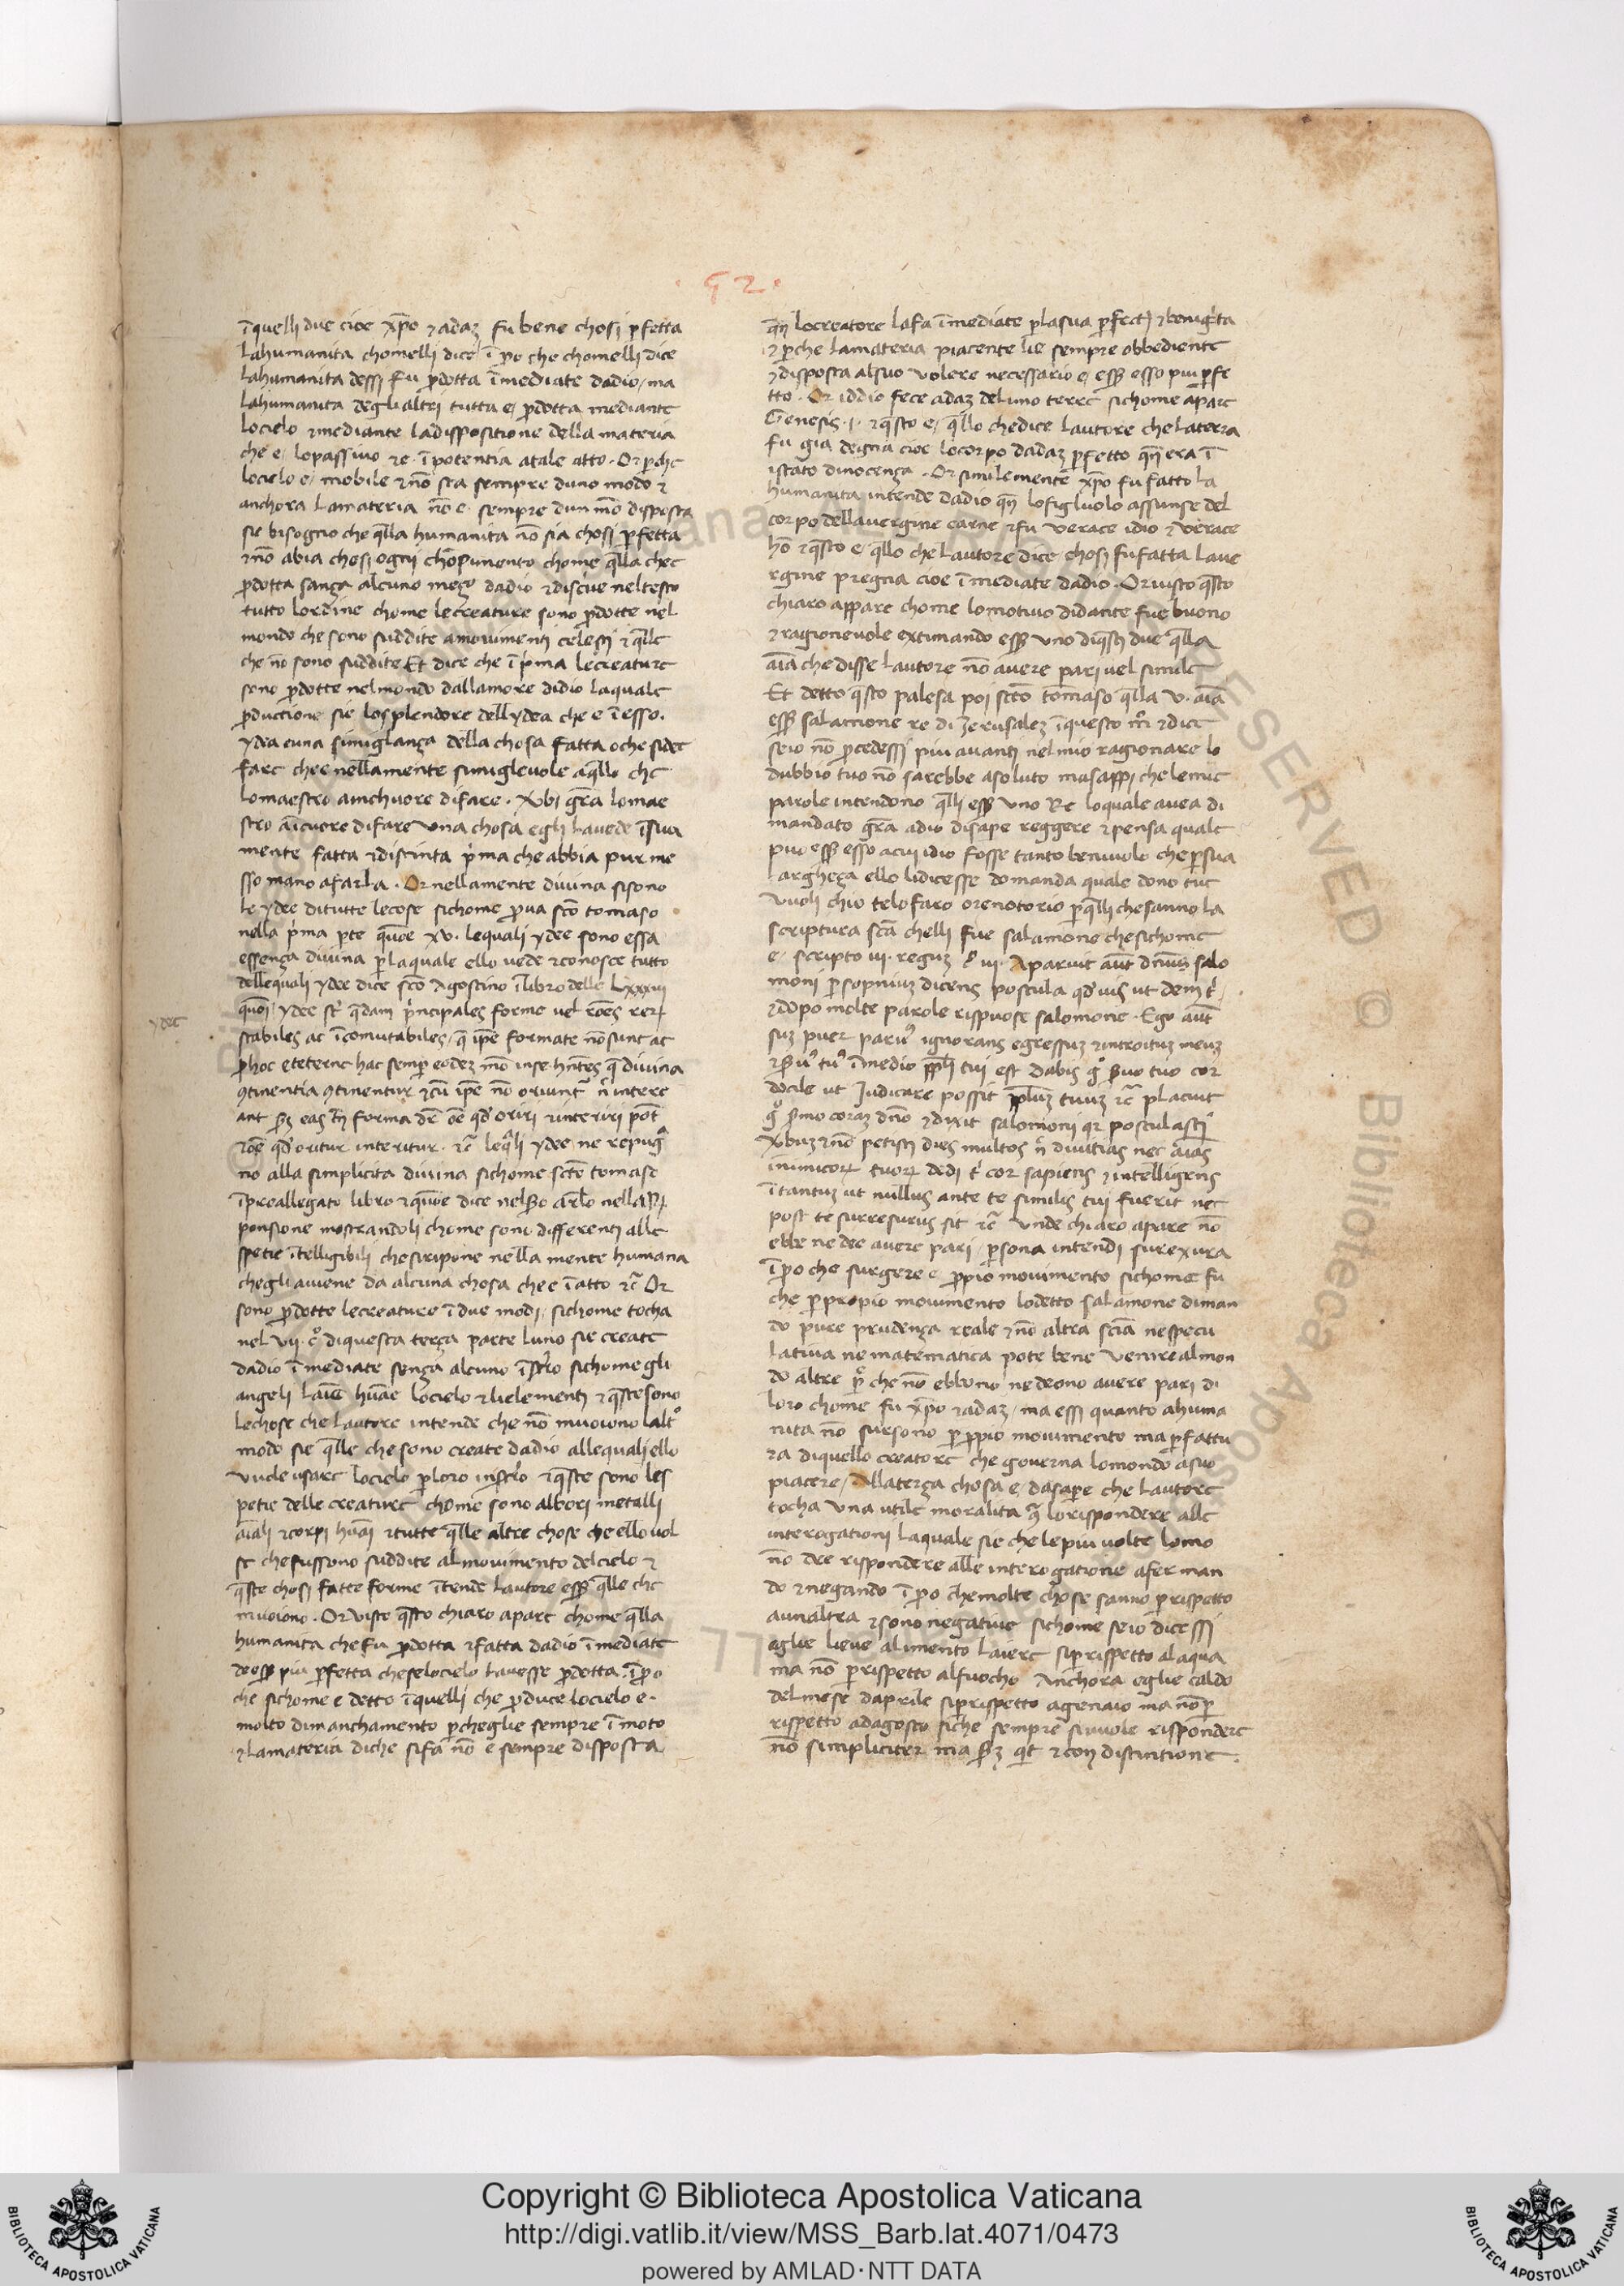 · 52 ·
ī quelli due cioe xp̄o ⁊ adaz fu bene chosi p̱fetta
Lahumanita chomelli dice ī po che chomelli dice
Lahumanita dessi fu p̱dotta īmediate dadio / ma
Lahumanita deglialtri tutta e / p̱dotta mediante
Locielo ⁊ mediante ladispositione della materia
che e / lopassiuo ⁊ e · ī potentia atale atto · Or p̱che
locielo e / mobile ⁊ nō sta sempre duno modo ⁊
anchora Lamateria nō e · sempre dun mō disposta
sie bisogno che q̄lla humanita nō sia chosi p̱fetta
⁊ nō abia chosi ogni chōpimento chome q̄lla che e
p̱dotta sanza alcuno mezo dadio ⁊ discriue nel testo
tutto lordine chome le creature sono p̱dotte nel
mondo che sono suddite amouimenti celesti ⁊ q̄lle
che nō sono suddite Et dice che ī p̍ma le creature
sono p̱dotte nel mondo dallamore didio laquale
p̱ductione sie losplendore dell ydea che e ī esso ·
ydea e una simiglanza della chosa fatta o che si dee
fare che e nellamente simiglevole a q̄llo che
lomaestro a inchuore di fare · Xvbi gr̄a lomae
stro a ī cuore di fare una chosa egli la uede ī sua
mente fatta ⁊ distinta p̍ma che abbia pur me
sso mano a farla · Or nellamente diuina si sono
le ydee di tutte le cose sichome p̱va sc̄o tomaso
nella p̍ma p̱te q̄one xv · lequali ydee sono essa
essenza diuina p̱ laquale ello uede ⁊ conosce tutto
dellequali ydee dice sc̄o Agostino ī libro delle Lxxxiii
ydee
q̄oni / ydee st̄ q̄dam p̍ncipales forme uel rōes reꝝ
stabiles ac īcomutabiles / q̄ ip̄e formate nō sunt ac
p̱ hoc eterne hac semp̱ eodez mō in se hn̄tes q̄ diuina
ꝯtinentia ꝯtinentur ⁊ cū ip̄e nō oriunt̄ n̄ intere
ant ẜz eas tn̄ forma dr̄e ōe qd̓ oriri ⁊ interiri pōt
⁊ ōe qd̓ oritur interitur · ⁊c̄ le q̄li ydee ne repug̃
no alla simplicita diuina sichome sc̄o tomaso
ī preallegato libro ⁊ q̄one dice nel ẜo arl̄o nella r̄
ponsione mostrandoli chome sono differenti alle
spetie ītelligibili che si ripone nella mente humana
che gli auiene da alcuna chosa che e ī atto ⁊c̄ Or
sono p̱dotte le creature ī due modi / sichome tocha
nel vii · c̊ di questa terza parte luno sie create
dadio ī mediate senza alcuno īstr̄o sichome gli
angeli Laīe hūae lo cielo ⁊ lielementi ⁊ q̄ste sono
le chose che lautore intende che nō muoiono laltͦ
modo sie q̄lle che sono create dadio allequali ello
vuole usare locielo p̱ loro instr̄o ⁊ q̄ste sono les
petie delle creature chome sono albori metalli
aīali ⁊ corpi hūai ⁊ tutte q̄lle altre chose che ello vol
se che fussono suddite al mouimento del cielo ⁊
q̄ste chosi fatte forme ītende Lautore eẜẜ q̄lle che
muoiono · Or visto q̄sto chiaro apare chome q̄lla
humanita che fu p̱dotta ⁊ fatta dadio ī mediate
de eẜẜ piu p̱fetta che se locielo Lauesse p̱dotta · ī p̱o
che sichome e detto ī quelli che p̱duce locielo e ·
molto di manchamento p̱che glie sempre ī moto
⁊ Lamateria di che si fa nō e sempre disposta
qn̄ lo creatore la fa īmediate p̱ la sua p̱fect̄i ⁊ benig̃ta
⁊ p̱che lamateria piacente lie sempre obbediente
⁊ disposta al suo volere necessario e / eẜẜ esso piu p̱fe
tto · Or iddio fece adaz del limo terre sichome apare
Genesis · j · ⁊ q̄sto e / q̄llo che dice lautore che Laterra
fu gia degna cioe lo corpo dadaz p̱fetto qn̄ era ī
istato dinocenza · Or similemente xp̄o fu fatto la
humanita intende dadio qn̄ lo figluolo assunse del
corpo della uergine carne ⁊ fu verace idio ⁊ verace
hō ⁊ q̄sto e / q̄llo che Lautore dice chosi fu fatta Laue
rgine pregna cioe ī mediate dadio · Or uisto q̄sto
chiaro appare chome lo motiuo di dante fue buono
⁊ ragioneuole extimando eẜẜ uno di q̄sti due q̄lla
aīa che disse Lautore nō auere pari uel simile
Et detto q̄sto palesa poi sc̄o tomaso q̄lla v · aīa
eẜẜ salamone re di Jerusalez ī questo mō ⁊ dice
se io nō p̱cedessi piu auanti nel mio ragionare lo
dubbio tuo nō sarebbe asoluto ma sappi che le mie
parole intendono q̄lli eẜẜ uno Re loquale auea di
mandato gr̄a adio di sape reggere ⁊ pensa quale
puo eẜẜ esso a cui idio fosse tanto beniuolo che p̱ sua
largheza ello li dicesse domanda quale dono tue
vuoli chio te lo faro ore notorio p̱ q̄lli che sanno la
scriptura sc̄a chelli fue salamone che sichome
e / scripto iii · reguz c̊ iii · Aparuit aūt dn̄us salo
moni p̱ sopnium dicens postula qd̓ uis ut dem t̍ ·
⁊ dopo molte parole rispuose salomone · Ego aūt
suz puer paruꝰ ignorans egressuz ⁊ introituz meuz
⁊ ẜuꝰ tuꝰ ī medio pp̄li tui est dabis g̊ ẜuo tuo cor
docile ut Judicare possit pp̄luz tuuz ⁊c̄ placuit
g̊ ẜmo coraz dn̄o ⁊ dixit salomoni qr postulasti
xbuz ⁊ nō petisti dies multos n̄ diuitias nec aīas
inimicoꝝ tuoꝝ dedi t̍ cor sapiens ⁊ intelligens
ī tantuz ut nullus ante te similis tui fuerit nec
post te surresurus sit ⁊c̄ unde chiaro apare nō
ebbe ne dee auere pari / p̱sona intendi surexura
ī p̱o che surgere e / p̱pio mouimento sichome fu
che p̱ propio mouimento lo detto salamone diman
do pure prudenza reale ⁊ nō altra scīa ne specu
latiua ne matematica pote bene venire al mon
do altre p̱ che nō ebbono ne deono auere pari di
loro chome fu xp̄o ⁊ adaz / ma essi quanto a huma
nita nō sursono p̱ p̱pio mouimento ma p̱ fattu
ra di quello creatore che gouerna lo mondo a suo
piacere / Alla terza chosa e / da sape che Lautore
tocha una utile moralita q̄ lo rispondere alle
interogationi laquale sie che le piu volte lomo
nō dee rispondere alle interogatione aferman
do ⁊ negando ī p̱o che molte chose sanno p̱ rispetto
a un altra ⁊ sono negatiue sichome se io dicessi
eglie lieue alimento laiere si p̱ rispetto al aqua
ma nō p̱ rispetto al fuocho Anchora eglie caldo
del mese daprile si p̱ rispetto a genaio ma nō p̱
rispetto ad agosto siche sempre si uuole rispondere
nō simpliciter ma ẜz qt̄ ⁊ con distintione ·
Copyright © Biblioteca Apostolica Vaticana
http://digi.vatlib.it/view/MSS_Barb.lat.4071/0473
powered by AMLAD·NTT DATA
BIBLIOTECA APOSTOLICA VATICANA
BIBLIOTECA APOSTOLICA VATICANA